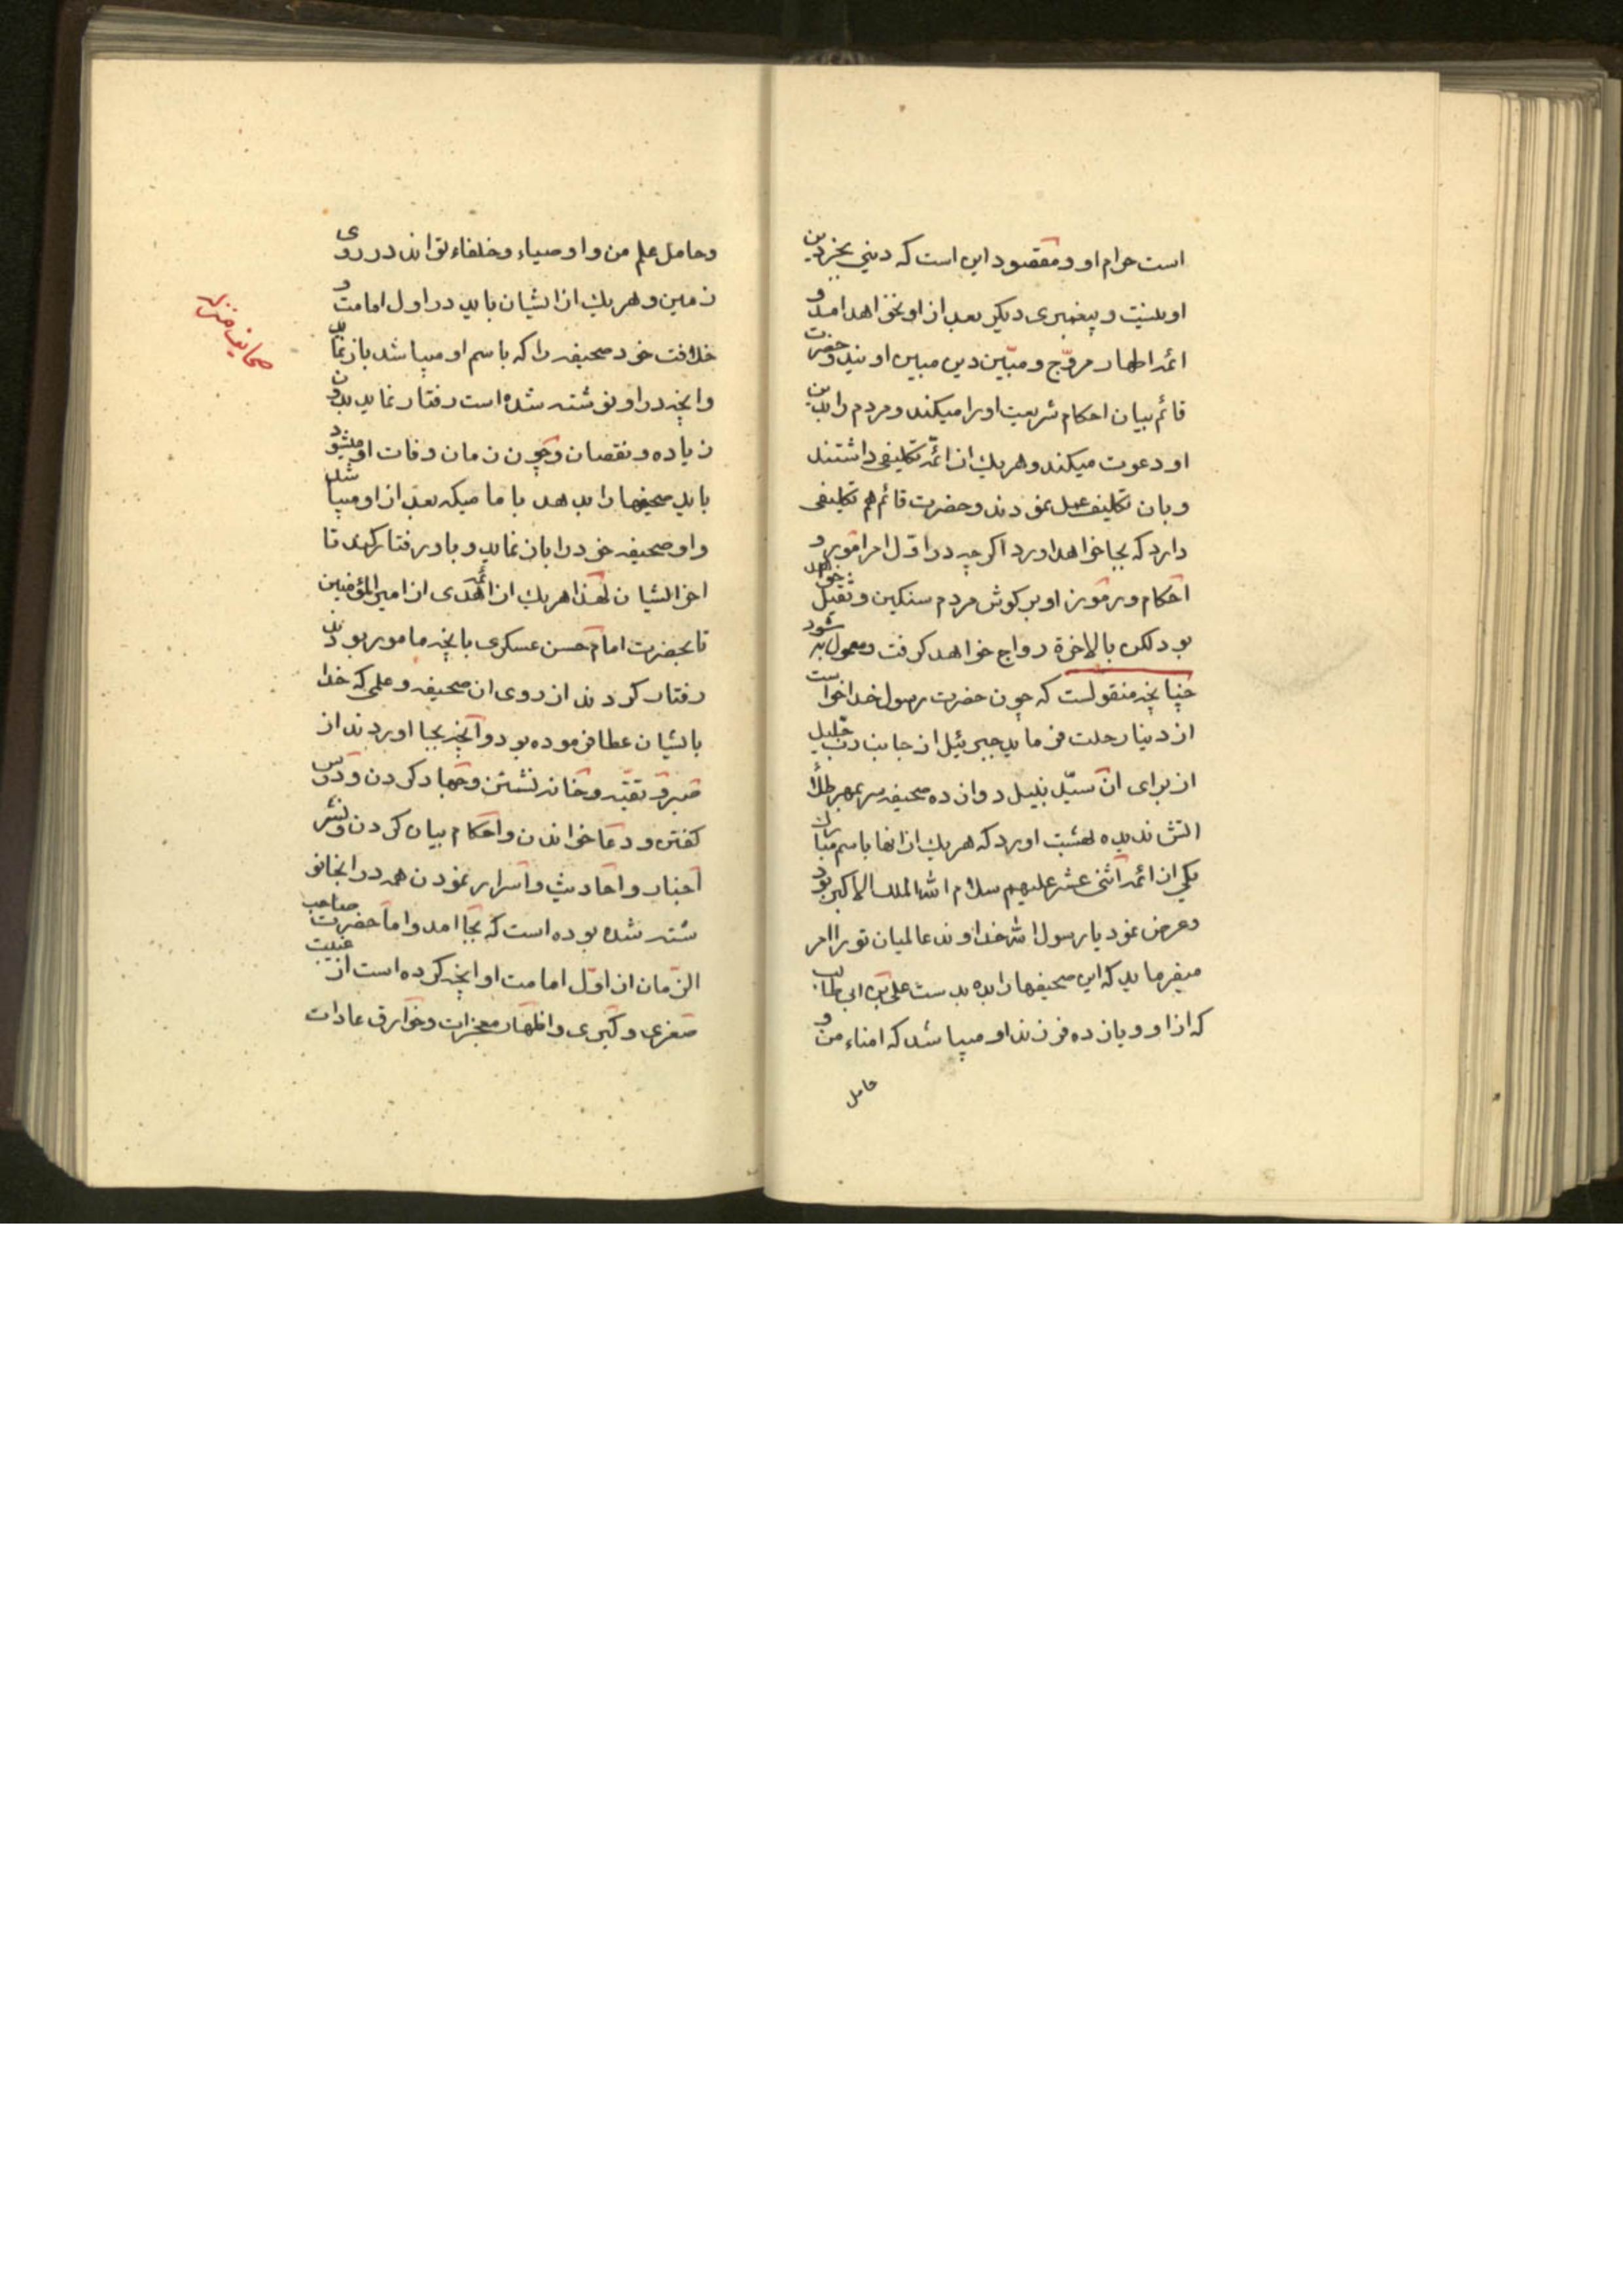 است حرام او و مقصود این است که دینی بجز دین
او نیست و پیغمبری دیگر بعد از او نخواهد امد و
ائمه اطهار مروّج و مبیّن دین مبین اویند و حضرت
قائم بیان احکام شریعت او را میکند و مردم را بدین
او دعوت میکند و هریك از ائمّه تکلیفی داشتند
و بان تکلیف عمل نمودند و حضرت قائم هم تکلیفی
دارد که بجا خواهد اورد اگرچه در اوّل امر امور و
احکام و رموز او بر کوش مردم سنکین و ثقیل خواهد
بود لکن بالاخرة رواج خواهد کرفت و معمول به شود
چنانچه منقولست که چون حضرت رسول خدا خواست
از دنیا رحلت فرماید جبرئیل از جانب ربّ جلیل
از برای ان سیّد نبیل دوازده صحیفه سر بمهر طلاء
اتش ندیده بهشت اورد که هریك از انها باسم مبارك
یکی از ائمه اثنی عشر علیهم سلام الله الملك الاکبر بود
و عرض نمود یا رسول الله خداوند عالمیان تو را امر
میفرماید که این صحیفها را بده بدست علی بن ابی طالب
که از او و یازده فرزند او میباشد که امناء من و
حامل
وحامل علم من و اوصیاء و خلفاء تواند در روی
زمین و هریك از ایشان باید در اول امامت و
خلافت خود صحیفه را که باسم او میباشد باز نماید
وانچه در او نوشته شده است رفتار نماید بدون
زیاده و نقصان و چون زمان وفات او میشود
باید صحیفها را بدهد باماميکه بعد از او میباشد
واو صحیفه خود را باز نماید و باو رفتار کند تا
اخر ایشان لهذا هریك از ائمّه هدی از امیر المؤمنین
تا بحضرت امام حسن عسکری بانچه مامور بودند
رفتار کردند از روی ان صحیفه و علمی که خدا
بایشان عطا فرموده بود و انچه بجا اوردند از
صبر و تقیّه و خانه نشستن و جهاد کردن و درس
کفتن و دعا خواندن و احکام بیان کردن و نشر
اخبار و احادیث و اسرار نمودن همه در انجا نو
شته شده بوده است که بجا امد و اما حضرت صاحب
الزّمان از اوّل امامت او انچه کرده است از غیبت
صغری و کبری و اظهار معجزات و خوارق عادات
صحایف منزله